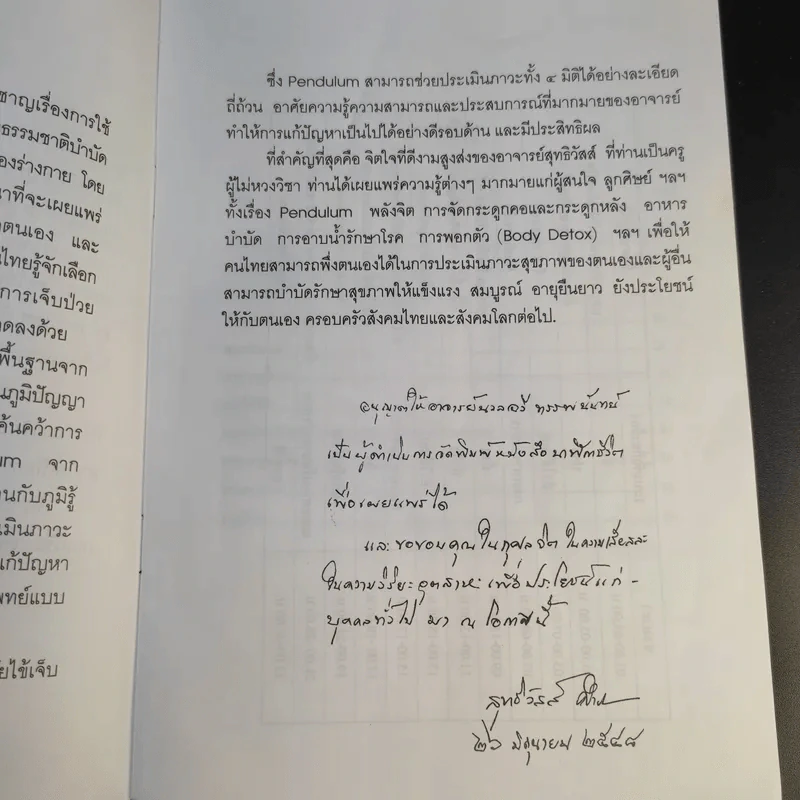 ชาญเรื่องการใช้
ธรรมชาติบำบัด
องร่างกาย โดย
าที่จะเผยแพร่
ตนเอง และ
ไทยรู้จักเลือก
การเจ็บป่วย
ดลงด้วย
พื้นฐานจาก
นภูมิปัญญา
ค้นคว้าการ
um จาก
านกับภูมิรู้
เมินภาวะ
แก้ปัญหา
พทย์แบบ
ัยไข้เจ็บ
ซึ่ง Pendulum สามารถช่วยประเมินภาวะทั้ง ๔ มิติได้อย่างละเอียด
ถี่ถ้วน อาศัยความรู้ความสามารถและประสบการณ์ที่มากมายของอาจารย์
ทำให้การแก้ปัญหาเป็นไปได้อย่างดีรอบด้าน และมีประสิทธิผล
ที่สำคัญที่สุดคือ จิตใจที่ดีงามสูงส่งของอาจารย์สุทธิวัสส์ ที่ท่านเป็นครู
ผู้ไม่หวงวิชา ท่านได้เผยแพร่ความรู้ต่างๆ มากมายแก่ผู้สนใจ ลูกศิษย์ ฯลฯ
ทั้งเรื่อง Pendulum พลังจิต การจัดกระดูกคอและกระดูกหลัง อาหาร
บำบัด การอาบน้ำรักษาโรค การพอกตัว (Body Detox) ฯลฯ เพื่อให้
คนไทยสามารถพึ่งตนเองได้ในการประเมินภาวะสุขภาพของตนเองและผู้อื่น
สามารถบำบัดรักษาสุขภาพให้แข็งแรง สมบูรณ์ อายุยืนยาว ยังประโยชน์
ให้กับตนเอง ครอบครัวสังคมไทยและสังคมโลกต่อไป.
อนุญาตให้อาจารย์นวลฉวี ทรรพนันทน์
เป็นผู้ดำเนินการจัดพิมพ์หนังสือนาฬิกาชีวิต
เพื่อเผยแพร่ได้
และขอขอบคุณในกุศลจิต ในความเสียสละ
ในความวิริยะอุตสาหะ เพื่อประโยชน์แก่ -
บุคคลทั่วไป มา ณ โอกาสนี้
สุทธิวัสส์
๒๖ มิถุนายน ๒๕๔๘